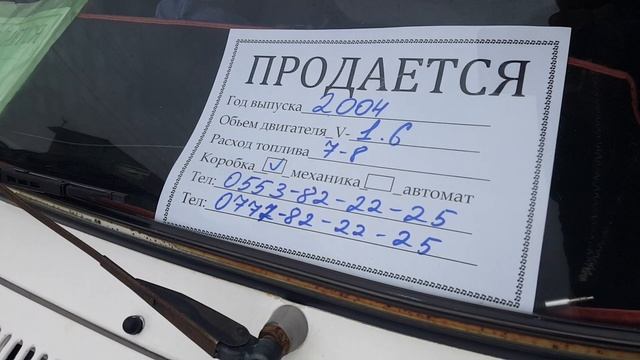 ПРОДАЕТСЯ
Год выпуска 2004
Объем двигателя_V- 1.6
Расход топлива 7-8
Коробка ☑ механика ☐ автомат
Тел: 0553-82-22-25
Тел: 0777-82-22-25